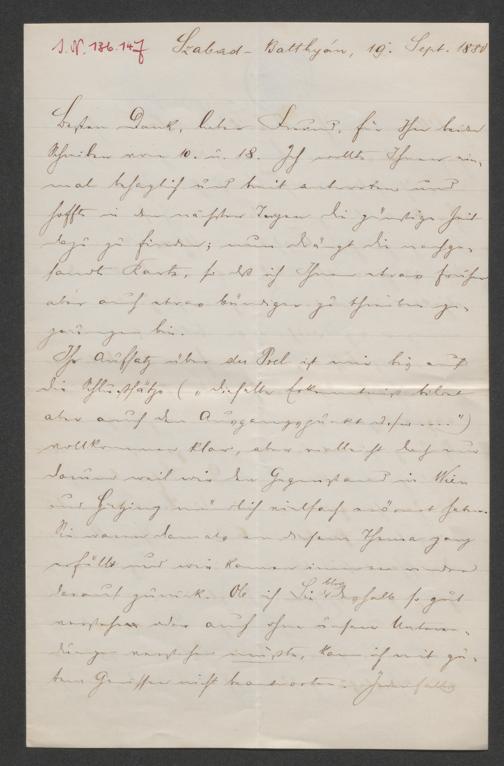 J. N. 136.147
Szabad-Batthyán, 19. Sept. 1880
Besten Dank, lieber Freund, für Ihre beiden
Schreiben vom 10. u. 18. Ich wollte Ihnen ein-
mal behaglich und breit antworten und
hoffte in den nächsten Tagen die günstige Zeit
dazu zu finden; nun drängt die nachge-
sandte Karte, so daß ich Ihnen etwas früher
aber auch etwas bündiger zu schreiben ge-
zwungen bin.
Ihr Aufsatz über du Prel ist mir bis auf
die Schlußsätze („dieselbe Erkenntniß bildet
aber auch den Ausgangspunkt ....")
vollkommen klar, aber vielleicht doch nur
darum weil wir den Gegenstand in Wien
und Hietzing mündlich vielfach erörtert haben.
Sie waren damals von diesem Thema ganz
erfüllt und wir kamen immer wieder
darauf zurück. Ob ich Sie blos deshalb so gut
verstehe oder auch ohne unsere Unterre-
dungen verstehen müßte, kann ich mit gu-
tem Gewissen nicht beantworten. Jedenfalls